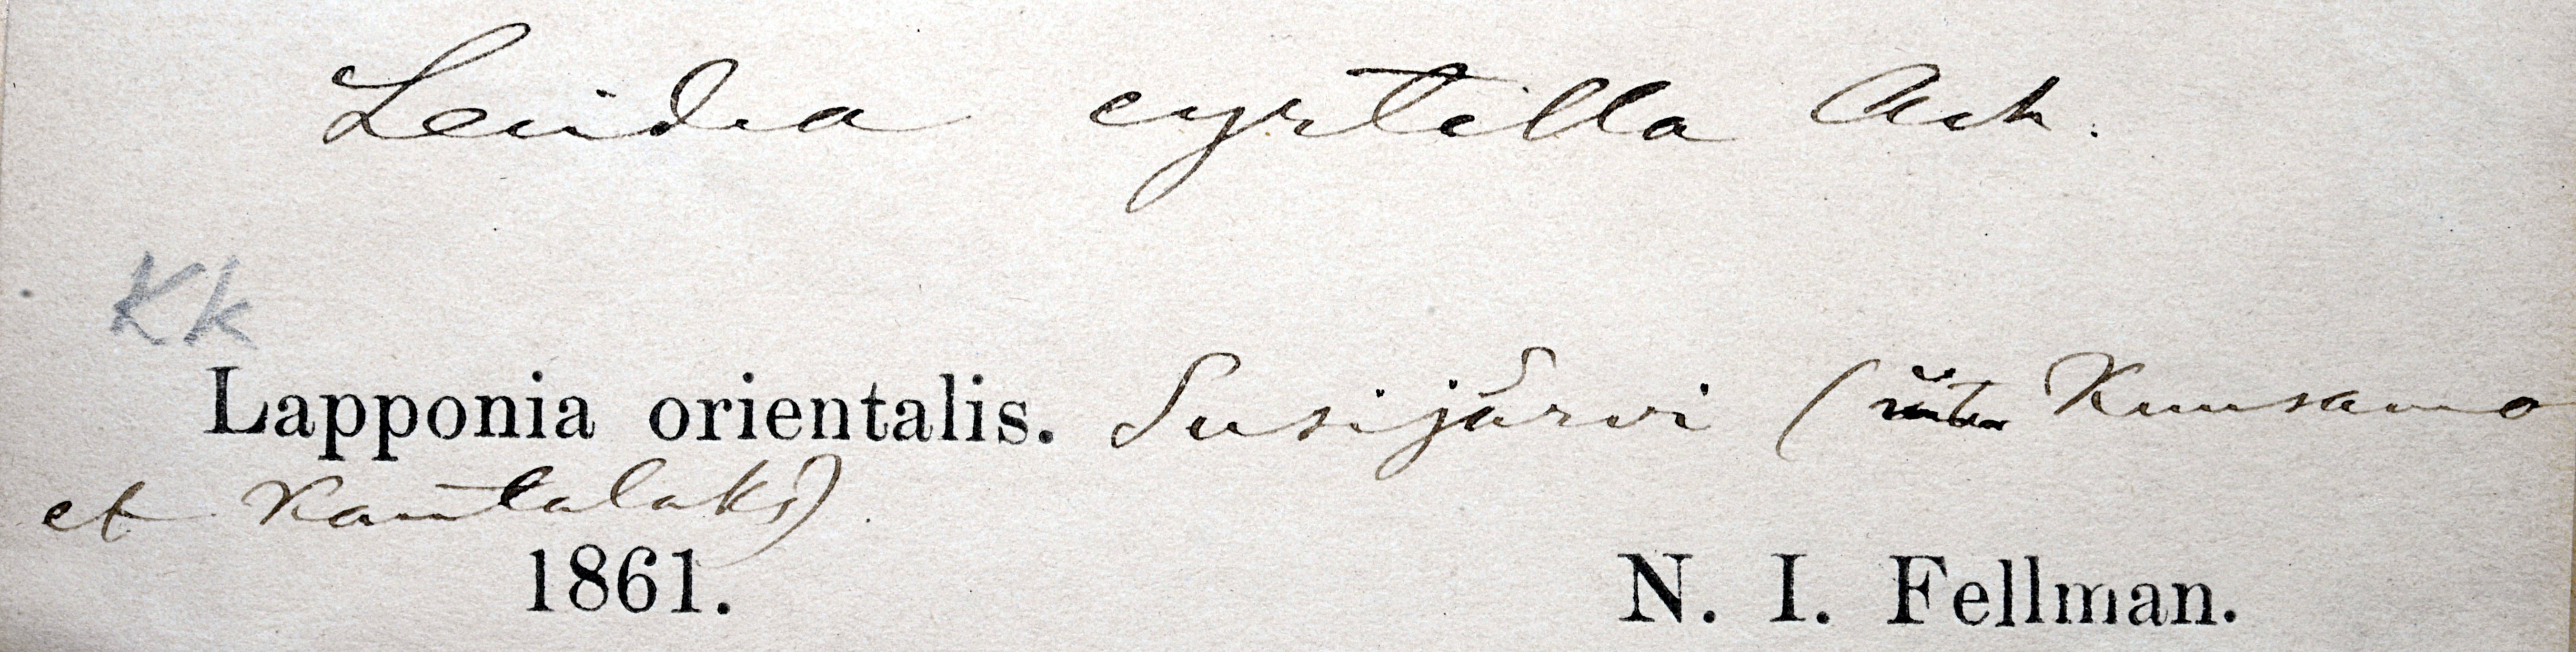 Lecidea cyrtella Ach.
Kk
Lapponia orientalis. Susijärvi (inter Kuusamo
et Kantalaks)
1861. N. I. Fellman.